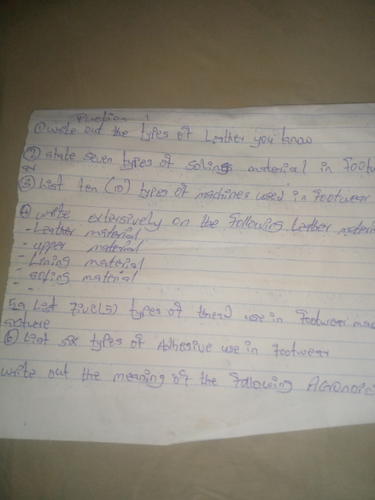 Question 1
① write out the types of Leather you know
② state seven types of soling material in Footw
③ List ten (10) types of machines used in Footwear
④ write extensively on the following Leather materi
- Leather material
- upper material
- Lining material
- soling material
-
5a List Five(5) types of thread use in Footwear
⑥ List six types of Adhesive use in Footwear
write out the meaning of the following